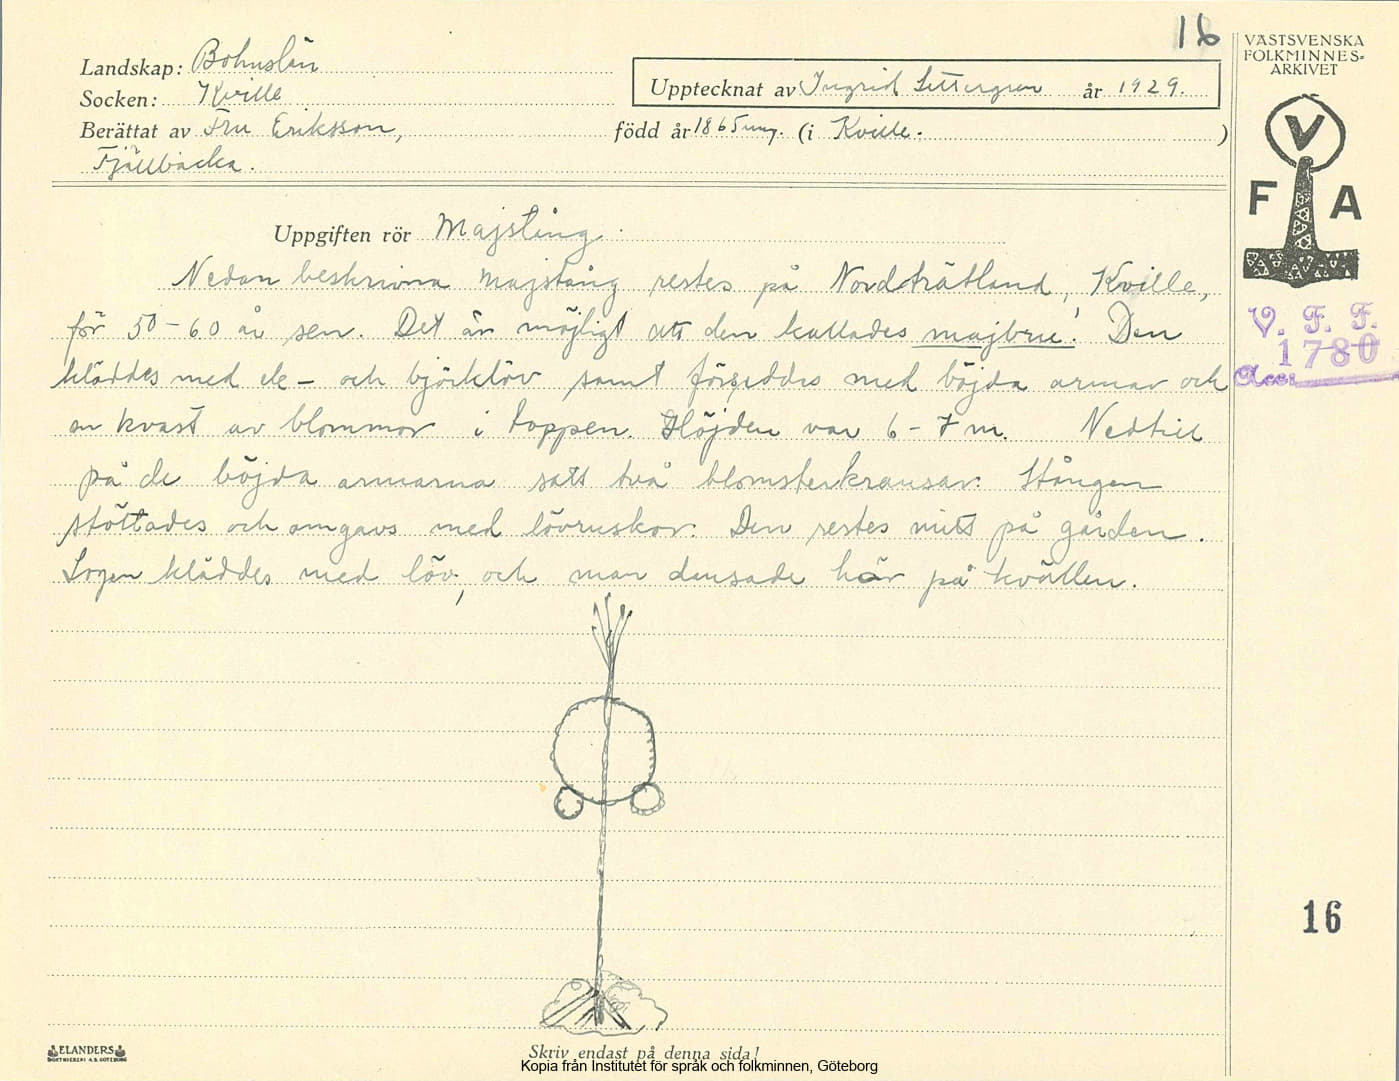 16
VÄSTSVENSKA
FOLKMINNES=
ARKIVET
Landskap: Bohuslän
Socken: Kville
Upptecknat av Ingrid Settergren år 1929.
Berättat av Fru Eriksson, född år 1865 ung. (i Kville. )
Fjällbacka.
V
F A
Uppgiften rör Majstång
Nedan beskrivna majstång restes på Nordträtland, Kville,
för 50-60 år sen. Det är möjligt att den kallades majbru! Den
kläddes med ek- och björklöv samt försöddes med böjda armar och
en kvast av blommor i toppen. Höjden var 6-7 m. Nedtill
på de böjda armarna satt två blomsterkransar. Stången
stöttades och omgavs med lövruskor. Den restes mitt på gården.
Logen kläddes med löv, och man dansade här på kvällen.
V. F. F.
1780
Acc:
16
ELANDERS
BOKTRYCKERI A.B. GÖTEBORG
Skriv endast på denna sida!
Kopia från Institutet för språk och folkminnen, Göteborg